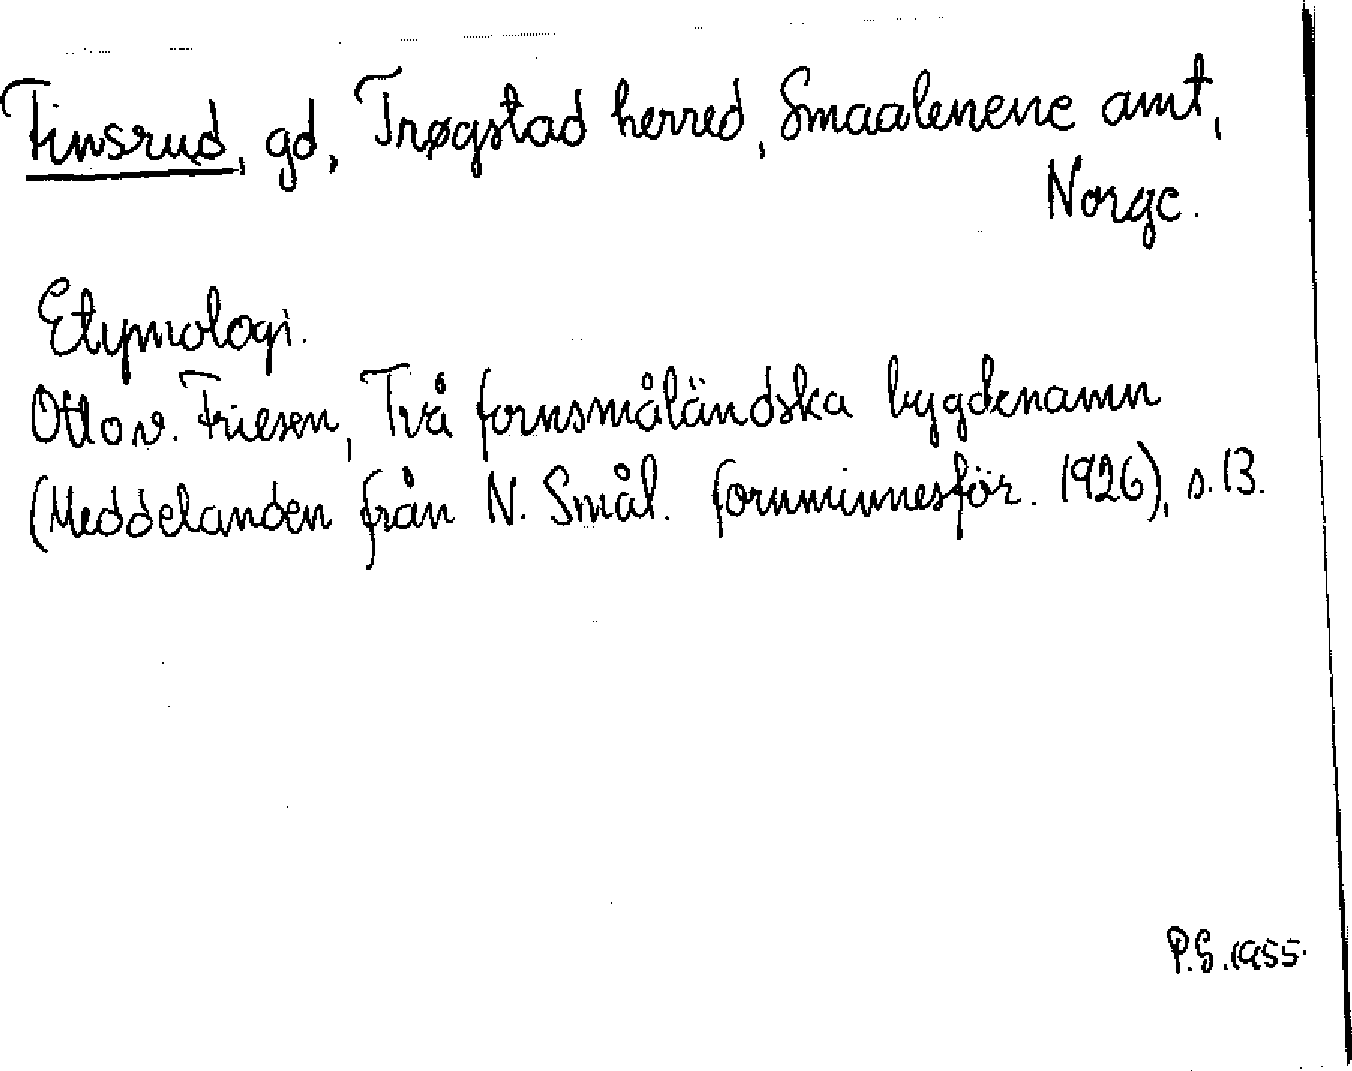 Finsrud, gd, Trøgstad herred, Smaalenene amt,
Norge.
Etymologi.
Otto v. Friesen, Två fornsmåländska bygdenamn
(Meddelanden från N. Smål. fornminnesför. 1926), s. 13.
P.G. 1955.